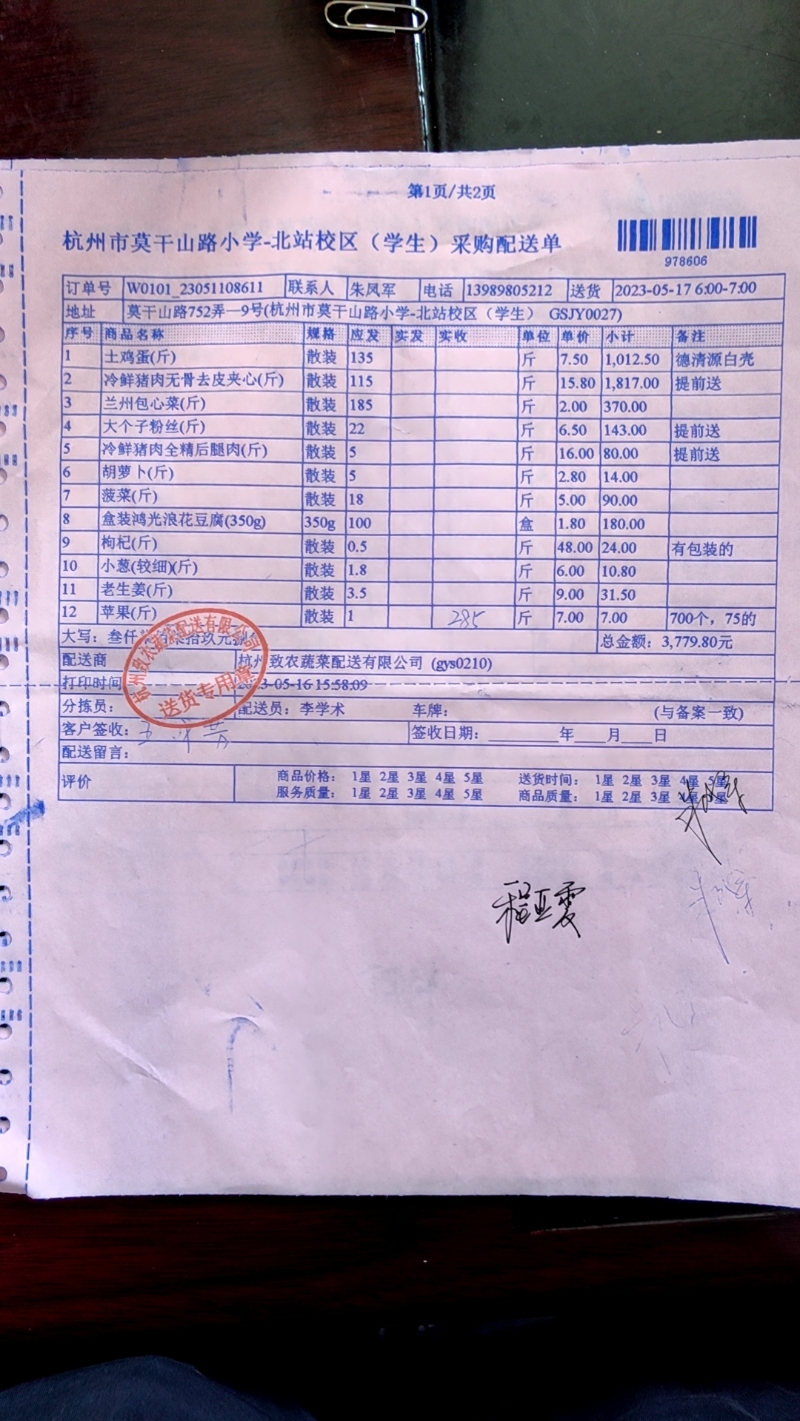 第1页/共2页
杭州市莫干山路小学-北站校区（学生）采购配送单
978606
订单号 W0101_23051108611 联系人 朱凤军 电话 13989805212 送货 2023-05-17 6:00-7:00
地址 莫干山路752弄一9号(杭州市莫干山路小学-北站校区（学生） GSJY0027)
序号 商品名称 规格 应发 实发 实收 单位 单价 小计 备注
1 土鸡蛋(斤) 散装 135 斤 7.50 1,012.50 德清源白壳
2 冷鲜猪肉无骨去皮夹心(斤) 散装 115 斤 15.80 1,817.00 提前送
3 兰州包心菜(斤) 散装 185 斤 2.00 370.00
4 大个子粉丝(斤) 散装 22 斤 6.50 143.00 提前送
5 冷鲜猪肉全精后腿肉(斤) 散装 5 斤 16.00 80.00 提前送
6 胡萝卜(斤) 散装 5 斤 2.80 14.00
7 菠菜(斤) 散装 18 斤 5.00 90.00
8 盒装鸿光浪花豆腐(350g) 350g 100 盒 1.80 180.00
9 枸杞(斤) 散装 0.5 斤 48.00 24.00 有包装的
10 小葱(较细)(斤) 散装 1.8 斤 6.00 10.80
11 老生姜(斤) 散装 3.5 斤 9.00 31.50
12 苹果(斤) 散装 1 285 斤 7.00 7.00 700个，75的
大写：叁仟 拾玖元 总金额：3,779.80元
配送商 杭州致农蔬菜配送有限公司 (gys0210)
杭州致农蔬菜配送有限公司
送货专用章
打印时间 3-05-16 15:58:09
分拣员： 配送员：李学术 车牌： (与备案一致)
客户签收： 签收日期：________年____月____日
配送留言：
评价 商品价格： 1星 2星 3星 4星 5星 送货时间： 1星 2星 3星 4星 5星
服务质量： 1星 2星 3星 4星 5星 商品质量： 1星 2星 3星 4星 5星
程亚雯